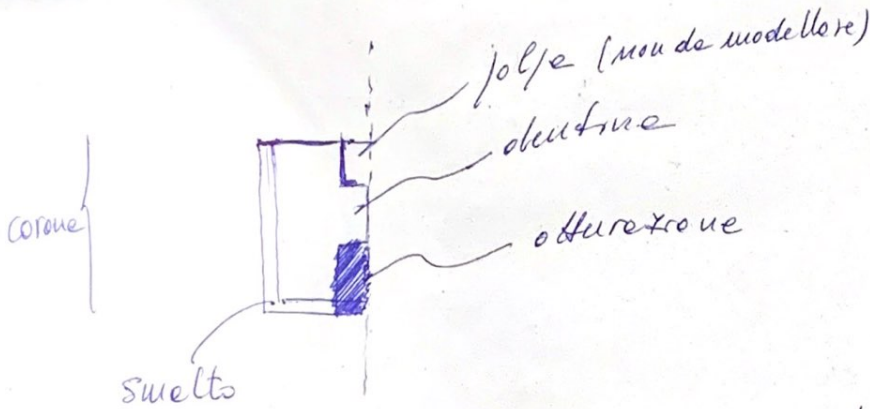 polpa (non da modellare)
dentina
otturazione
corona
smalto